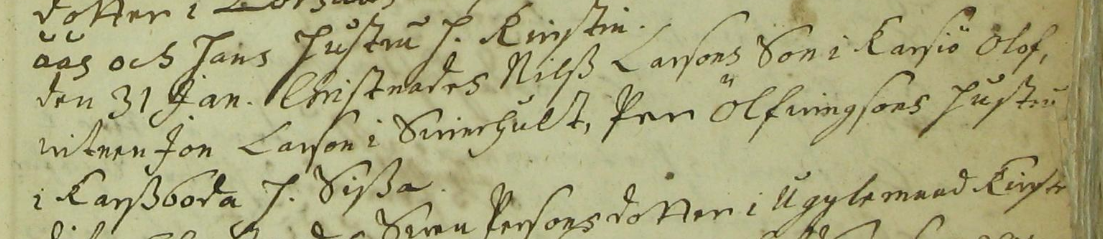 dotter i
åås och hans hustru h. Kirstin.
den 31 Jan. Christnades Nilß Larsons Son i Karsiö Olof,
witnen Jon Larson i Swinhult, Per Ölfwingsons hustru
i Karßboda h. Sißa.
Swen Persons dotter i Ugglemaad